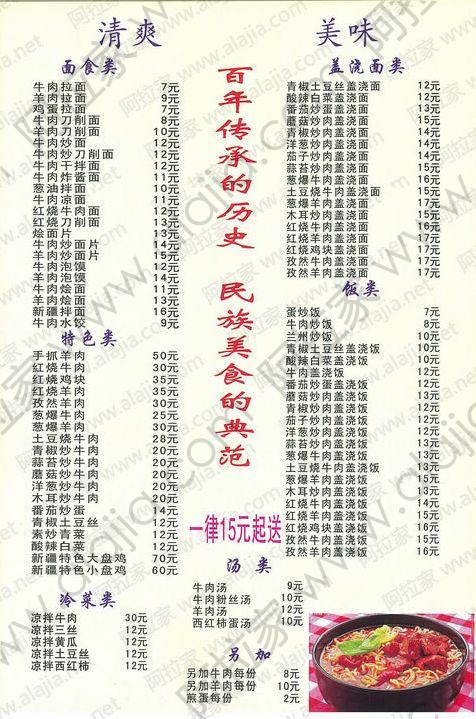 清爽
面食类
牛肉拉面 7元
羊肉拉面 9元
鸡蛋拉面 7元
牛肉刀削面 8元
羊肉刀削面 10元
牛肉炒面 12元
牛肉炒刀削面 12元
牛肉干拌面 12元
牛肉炸酱面 11元
葱油拌面 10元
牛肉凉面 11元
红烧牛肉面 12元
红烧刀削面 13元
烩面片 13元
牛肉炒面片 14元
羊肉炒面片 15元
牛肉泡馍 12元
羊肉泡馍 14元
牛肉烩面 11元
羊肉烩面 13元
新疆拌面 16元
牛肉水饺 9元
特色类
手抓羊肉 50元
红烧牛肉 30元
红烧鸡块 35元
红烧羊肉 35元
孜然羊肉 30元
葱爆牛肉 25元
葱爆羊肉 25元
土豆烧牛肉 28元
青椒炒牛肉 20元
蒜苔炒牛肉 20元
蘑菇炒牛肉 20元
洋葱炒牛肉 20元
木耳炒牛肉 20元
番茄炒蛋 14元
青椒土豆丝 12元
素炒青菜 12元
酸辣白菜 12元
新疆特色大盘鸡 70元
新疆特色小盘鸡 60元
冷菜类
凉拌牛肉 30元
凉拌三丝 12元
凉拌黄瓜 12元
凉拌土豆丝 12元
凉拌西红柿 12元
百年传承的历史 民族美食的典范
一律15元起送
汤类
牛肉汤 9元
牛肉粉丝汤 10元
羊肉汤 12元
西红柿蛋汤 10元
另加
另加牛肉每份 8元
另加羊肉每份 10元
煎蛋每份 2元
美味
盖浇面类
青椒土豆丝盖浇面 12元
酸辣白菜盖浇面 12元
番茄炒蛋盖浇面 13元
蘑菇炒肉盖浇面 14元
青椒炒肉盖浇面 14元
洋葱炒肉盖浇面 14元
茄子炒肉盖浇面 14元
蒜苔炒肉盖浇面
葱爆牛肉盖浇面
土豆烧牛肉盖浇面 15元
葱爆羊肉盖浇面 17元
木耳炒肉盖浇面 15元
红烧牛肉盖浇面 16元
红烧羊肉盖浇面 17元
红烧鸡块盖浇面
孜然牛肉盖浇面
孜然羊肉盖浇面 17元
饭类
蛋炒饭 7元
牛肉炒饭 8元
兰州炒饭 10元
青椒土豆丝盖浇饭 12元
酸辣白菜盖浇饭 12元
牛肉盖浇饭 12元
番茄炒蛋盖浇饭 12元
蘑菇炒肉盖浇饭 13元
茄子炒肉盖浇饭 13元
青椒炒肉盖浇饭 12元
洋葱炒肉盖浇饭 12元
蒜苔炒肉盖浇饭 13元
土豆烧牛肉盖浇饭
木耳炒肉盖浇饭
葱爆牛肉盖浇饭
葱爆羊肉盖浇饭
红烧牛肉盖浇饭
红烧羊肉盖浇饭
红烧鸡块盖浇饭
孜然牛肉盖浇饭
孜然羊肉盖浇饭 16元
阿拉家 www.alajia.net